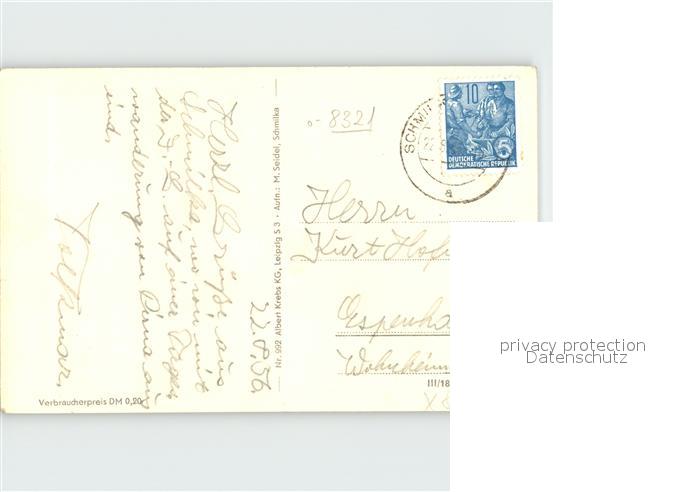 Herzl. Grüße aus
Schmilka, wo wir mit
der D. L. auf einer Tages
wanderung von Pirna aus
sind.
Volkmar.
22.8.56
Nr. 992 Albert Krebs KG, Leipzig S 3 · Aufn.: M. Seidel, Schmilka
8321
SCHMI
a
10
5
DEUTSCHE
DEMOKRATISCHE REPUBLIK
Herrn
Kurt Hof
Espenha
Wohnheim
III/18
Verbraucherpreis DM 0,20
privacy protection
Datenschutz